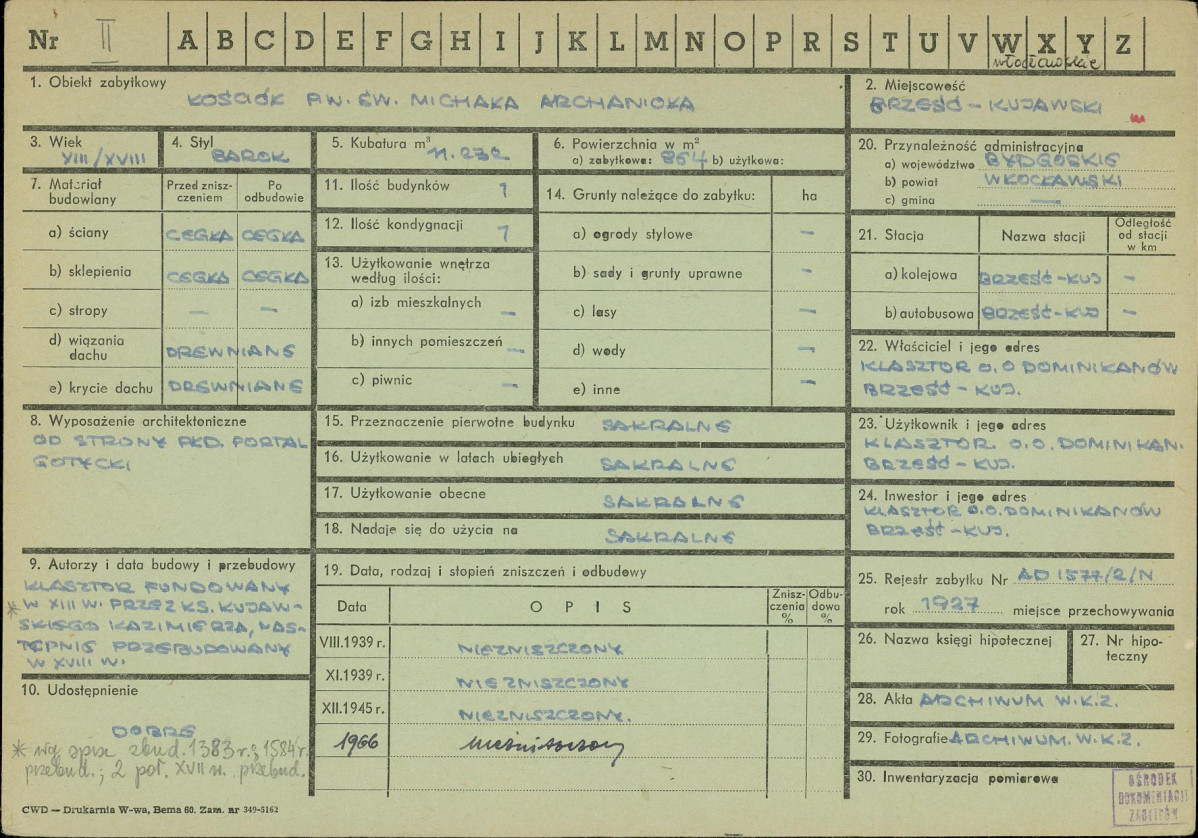 Nr II A B C D E F G H I J K L M N O P R S T U V W X Y Z
włocławskie
1. Obiekt zabytkowy
KOŚCIÓŁ P.W. ŚW. MICHAŁA ARCHANIOŁA
2. Miejscowość
BRZEŚĆ - KUJAWSKI
3. Wiek
XIII/XVIII
4. Styl
BAROK
5. Kubatura m³
11.232
6. Powierzchnia w m²
a) zabytkowa: 864 b) użytkowa:
20. Przynależność administracyjna
a) województwo BYDGOSKIE
b) powiat WŁOCŁAWSKI
c) gmina —
7. Materiał budowlany
Przed zniszczeniem
Po odbudowie
a) ściany CEGŁA CEGŁA
b) sklepienia CEGŁA CEGŁA
c) stropy — —
d) wiązania dachu DREWNIANE
e) krycie dachu DREWNIANE
11. Ilość budynków 1
12. Ilość kondygnacji 1
13. Użytkowanie wnętrza
według ilości:
a) izb mieszkalnych —
b) innych pomieszczeń —
c) piwnic —
14. Grunty należące do zabytku: ha
a) ogrody stylowe —
b) sady i grunty uprawne —
c) lasy —
d) wody —
e) inne —
21. Stacja
Nazwa stacji
Odległość
od stacji
w km
a) kolejowa BRZEŚĆ-KUJ —
b) autobusowa BRZEŚĆ-KUJ —
22. Właściciel i jego adres
KLASZTOR O.O DOMINIKANÓW
BRZEŚĆ - KUJ.
8. Wyposażenie architektoniczne
OD STRONY PŁD. PORTAL
GOTYCKI
15. Przeznaczenie pierwotne budynku SAKRALNE
16. Użytkowanie w latach ubiegłych SAKRALNE
17. Użytkowanie obecne SAKRALNE
18. Nadaje się do użycia na SAKRALNE
23. Użytkownik i jego adres
KLASZTOR. O.O. DOMINIKAN.
BRZEŚĆ - KUJ.
24. Inwestor i jego adres
KLASZTOR O.O. DOMINIKANÓW
BRZEŚĆ - KUJ.
9. Autorzy i data budowy i przebudowy
KLASZTOR FUNDOWANY
* W XIII W. PRZEZ KS. KUJAW-
SKIEGO KAZIMIERZA, NAS-
TĘPNIE PRZEBUDOWANY
W XVIII W.
10. Udostępnienie
DOBRE
* wg spisu zbud. 1383 r.; 1584 r.
przebud.; 2 poł. XVII w. przebud.
19. Data, rodzaj i stopień zniszczeń i odbudowy
Data
OPIS
Zniszczenia
%
Odbudowa
%
VIII.1939 r. NIEZNISZCZONY
XI.1939 r. NIEZNISZCZONY
XII.1945 r. NIEZNISZCZONY.
1966 nieźniszczony
25. Rejestr zabytku Nr AD 1577/2/N
rok 1927 miejsce przechowywania
26. Nazwa księgi hipotecznej
27. Nr hipo-
teczny
28. Akta ARCHIWUM W.K.Z.
29. Fotografie ARCHIWUM. W.K.Z.
30. Inwentaryzacja pomiarowa
OŚRODEK
DOKUMENTACJI
ZABYTKÓW
CWD — Drukarnia W-wa, Bema 60. Zam. nr 349-5162